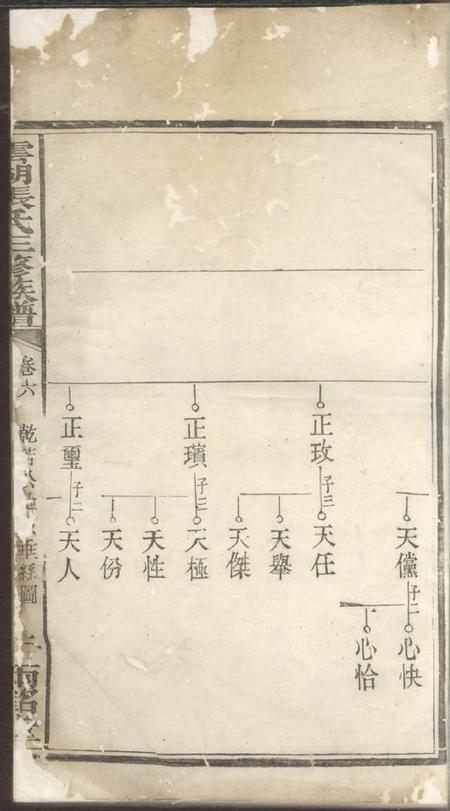 天儻
子二
心快
心恰
正玫
子三
天任
天舉
天傑
正璸
子三
天極
天性
天份
正璽
子二
天人
張氏三修族譜
卷六
垂絲圖